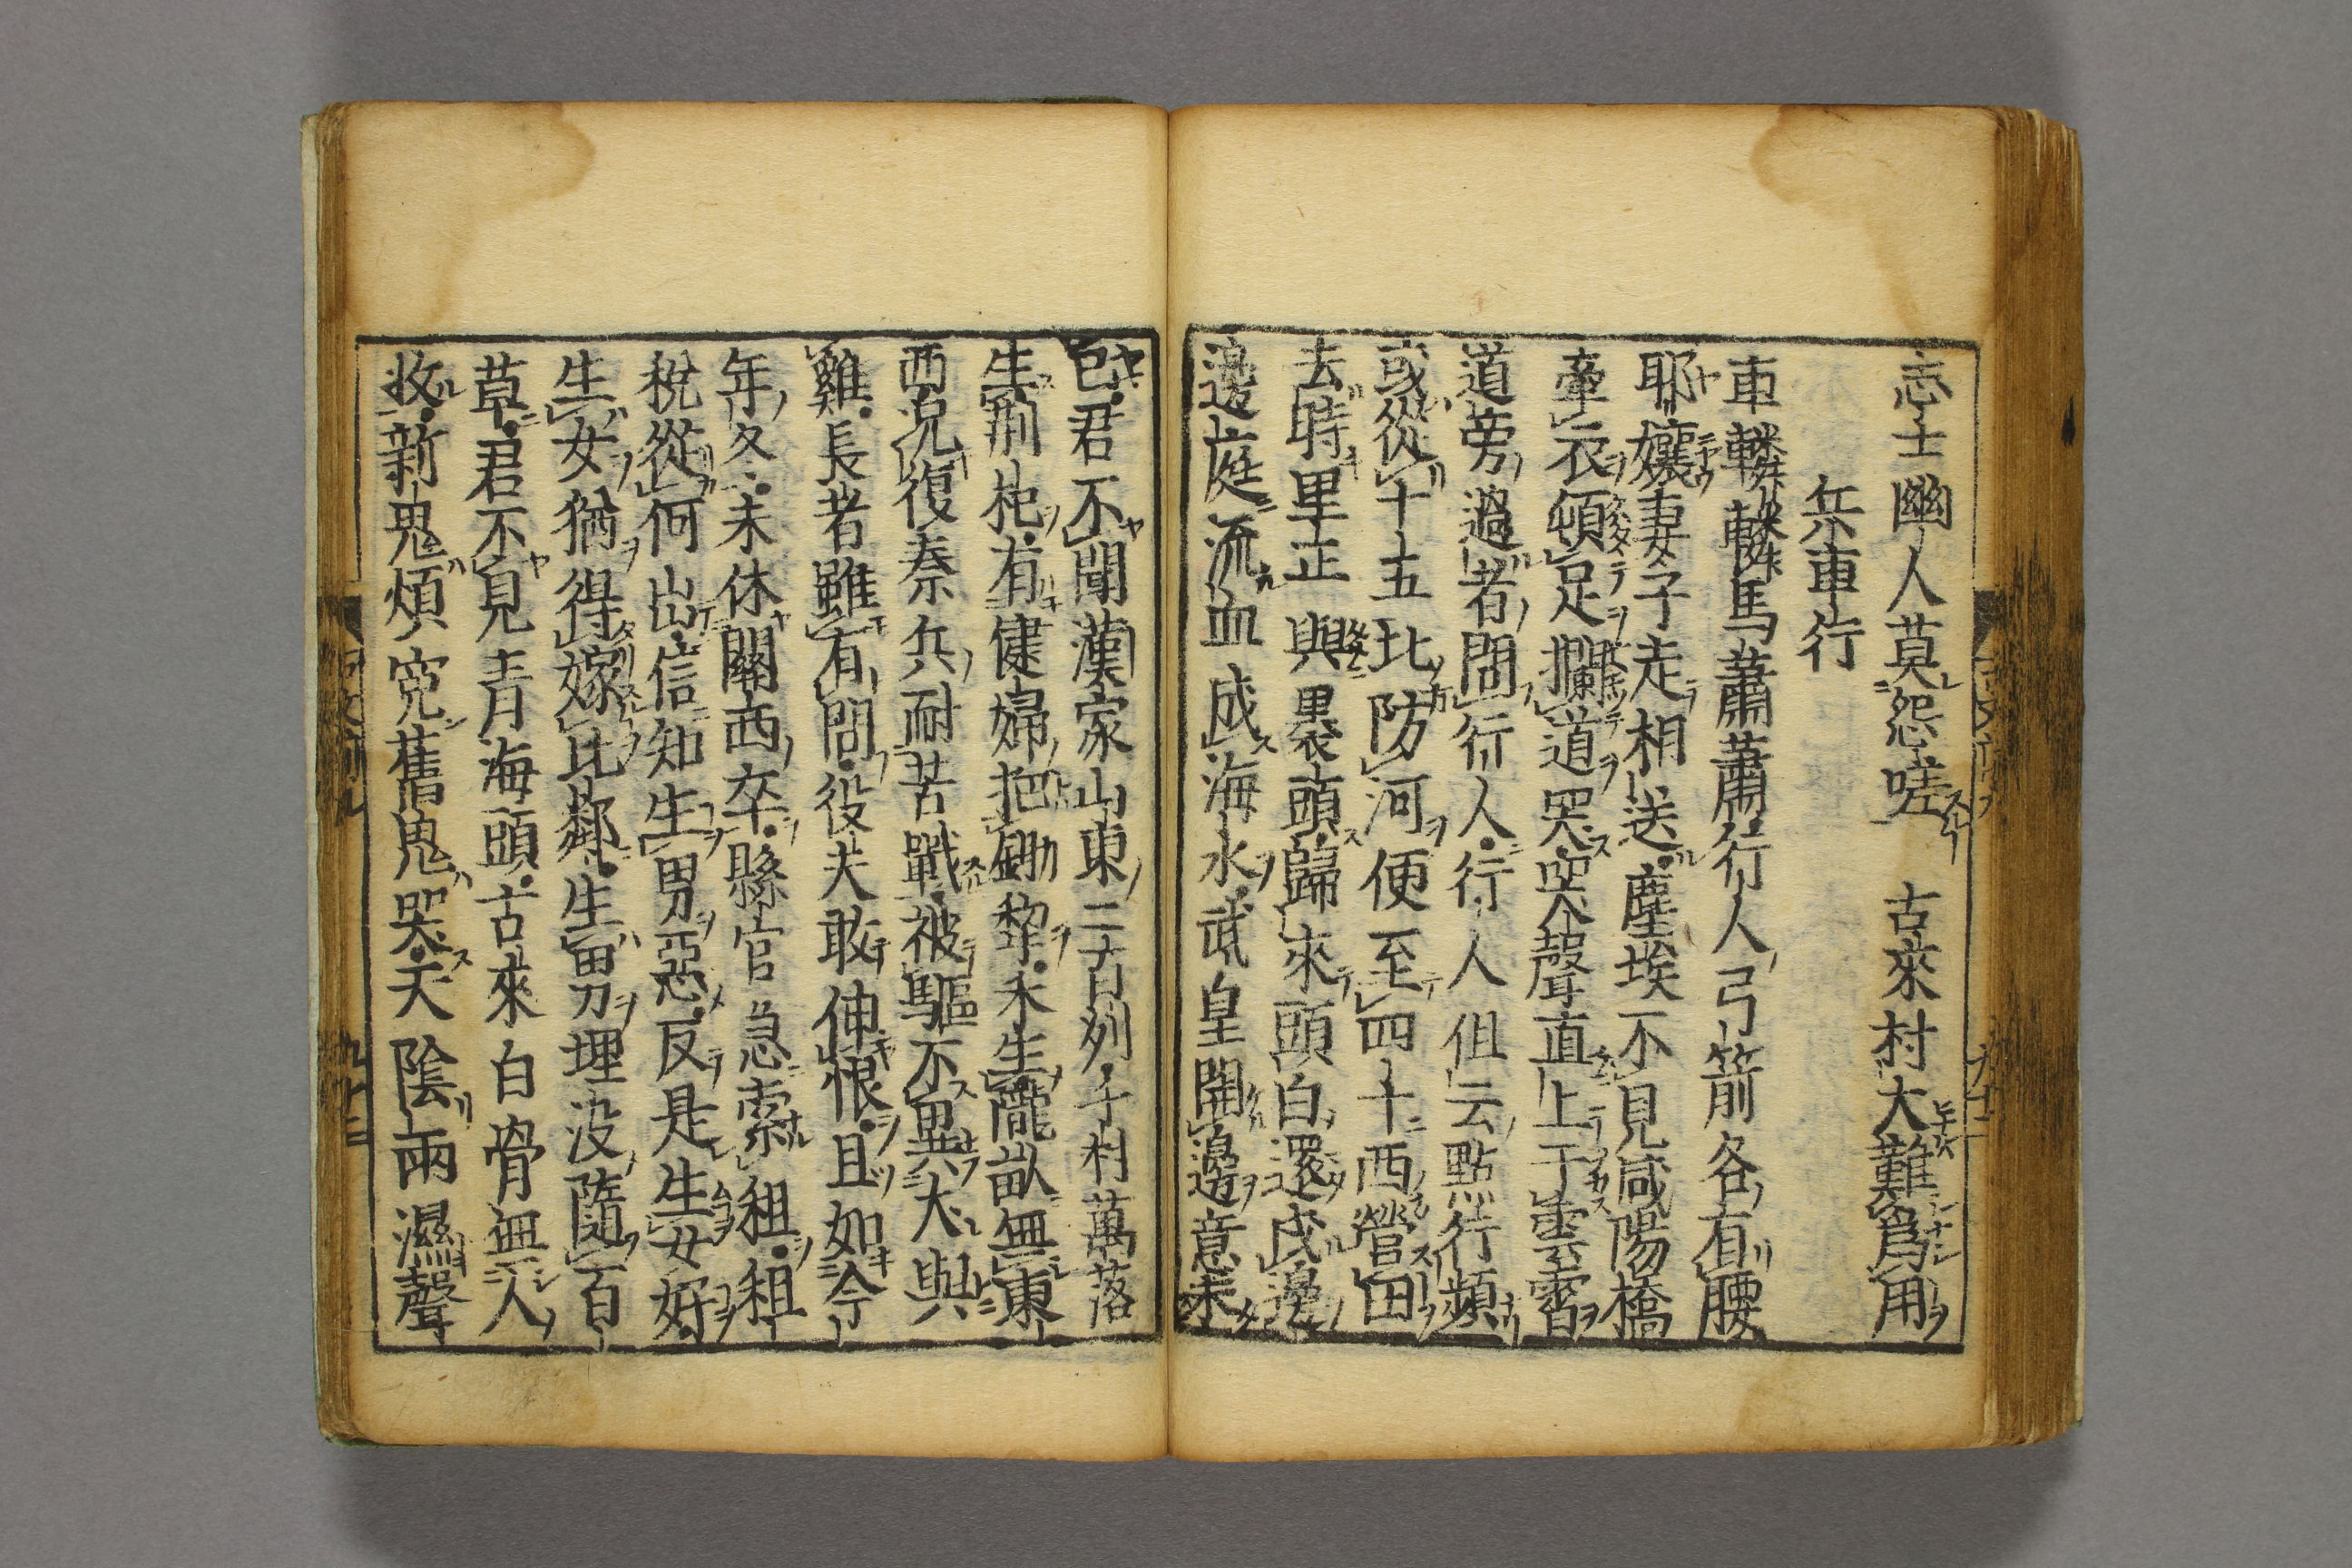 志士幽人莫怨嗟　古來材大難爲用
兵車行
車轔轔馬蕭蕭行人弓箭各有腰
耶孃妻子走相送塵埃不見咸陽橋
牽衣頓足攔道哭哭聲直上干雲霄
道旁過者問行人行人但云點行頻
或從十五北防河便至四十西營田
去時里正與裹頭歸來頭白還戍邊
邊庭流血成海水武皇開邊意未
已君不聞漢家山東二百列千村萬落
生荊杞有健婦把鋤犂禾生隴畝無東
西況復秦兵耐苦戰被驅不異犬與
雞長者雖有問役夫敢伸恨且如今
年冬未休關西卒縣官急索租租
稅從何出信知生男惡反是生女好
生女猶得嫁比鄰生男埋沒隨百
草君不見青海頭古來白骨無人
收新鬼煩冤舊鬼哭天陰雨濕聲
九十三